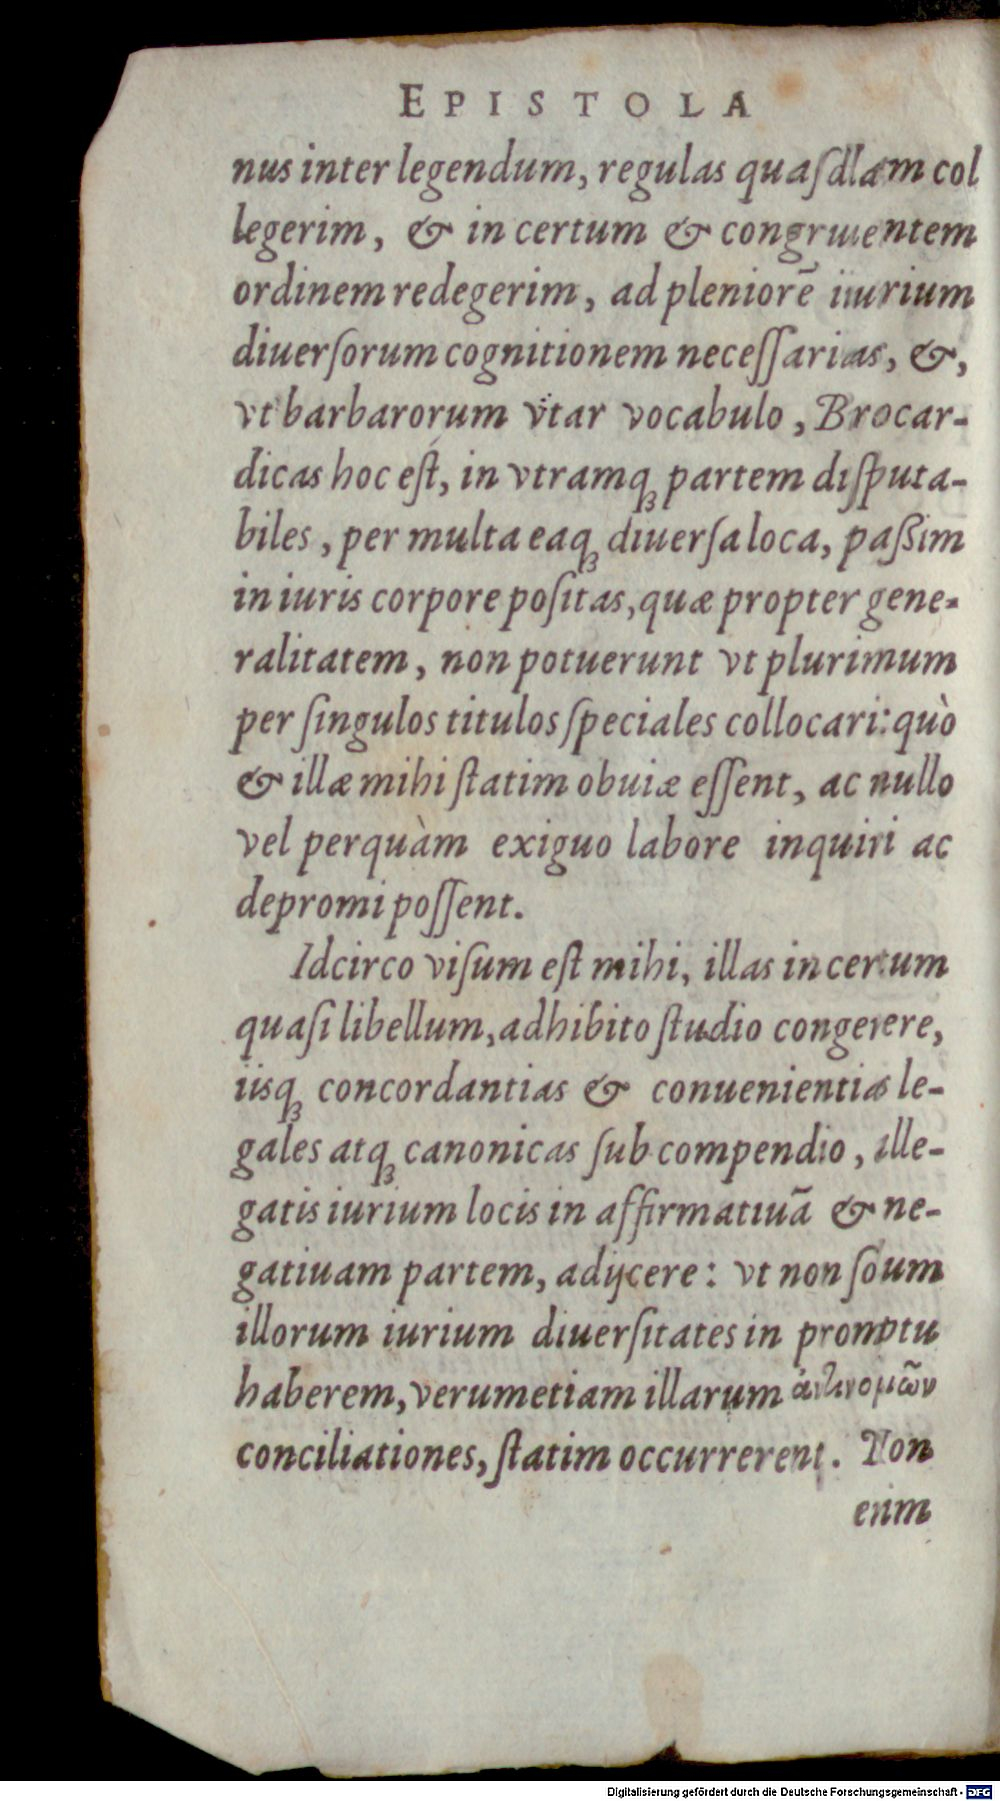 EPISTOLA
nus inter legendum, regulas quaſdam col
legerim, & in certum & congruentem
ordinem redegerim, ad pleniorẽ iurium
diuerſorum cognitionem neceſſarias, &,
vt barbarorum vtar vocabulo, Brocar-
dicas hoc eſt, in vtramq́ꝫ partem diſputa-
biles, per multa eaqꝫ diuerſa loca, paßim
in iuris corpore poſitas, quæ propter gene-
ralitatem, non potuerunt vt plurimum
per ſingulos titulos ſpeciales collocari: quò
& illæ mihi ſtatim obuiæ eſſent, ac nullo
vel perquàm exiguo labore inquiri ac
depromi poſſent.
Idcirco viſum eſt mihi, illas in certum
quaſi libellum, adhibito ſtudio congerere,
iisqꝫ concordantias & conuenientias le-
gales atqꝫ canonicas ſub compendio, alle-
gatis iurium locis in affirmatiuã & ne-
gatiuam partem, adijcere: vt non ſolum
illorum iurium diuerſitates in promptu
haberem, verumetiam illarum ἀντινομιῶν
conciliationes, ſtatim occurrerent. Non
enim
Digitalisierung gefördert durch die Deutsche Forschungsgemeinschaft - DFG